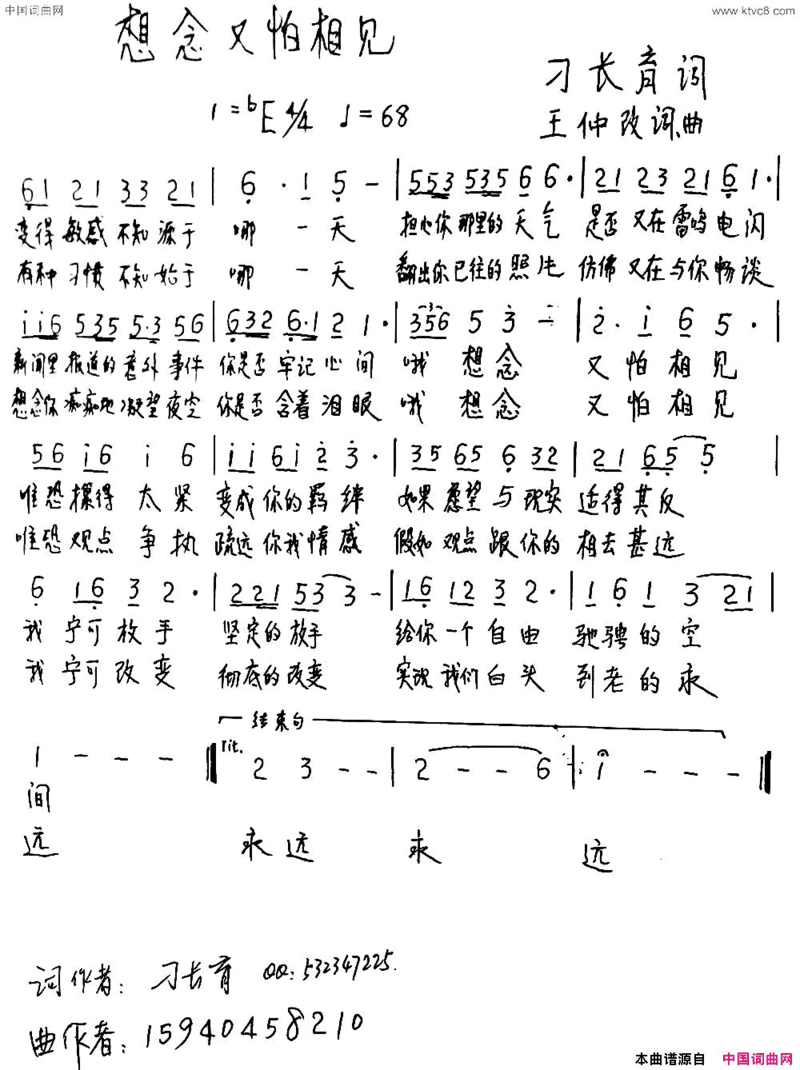 中国词曲网
www.ktvc8.com
想念又怕相见
刁长育词
1=bE 4/4 ♩=68
王仲改词曲
61 21 33 21 | 6 · 1 5 - | 553 535 66 · | 21 23 216 1 · |
变得敏感不知源于 哪一天 担心你那里的天气 是否又在雷鸣电闪
有种习惯不知始于 哪一天 翻出你已往的照片 仿佛又在与你畅谈
116 535 5·3 56 | 632 6·1 2 1 · | 356 5 3 - | 2 · 1 6 5 · |
新闻里报道的意外事件 你是否牢记心间 哦想念 又怕相见
想念你痴痴地凝望夜空 你是否含着泪眼 哦想念 又怕相见
56 16 1 6 | 11 61 2 3 · | 35 65 6 32 | 21 65 5 |
唯恐攥得太紧 变成你的羁绊 如果愿望与现实 适得其反
唯恐观点争执 疏远你我情感 假如观点跟你的 相去甚远
6 16 3 2 · | 221 53 3 - | 16 12 3 2 · | 1 6 1 3 21 |
我宁可放手 坚定的放手 给你一个自由 驰骋的空
我宁可改变 彻底的改变 实现我们白头 到老的永
结束句
1 - - - rit. 2 3 - - | 2 - - 6 | 1 - - -
间
远 永远 永 远
词作者：刁长育 QQ:532347225.
曲作者：15940458210
本曲谱源自 中国词曲网